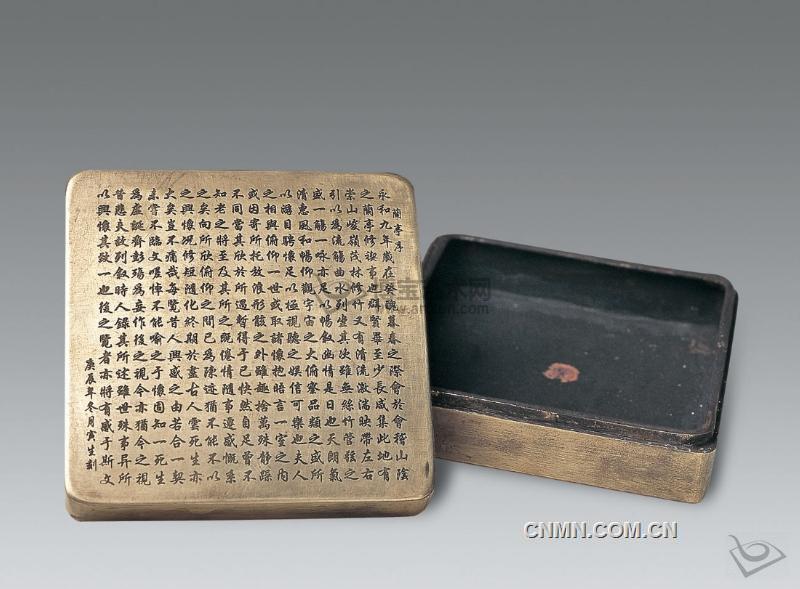 蘭亭序
永和九年歲在癸醜暮春之際會於會稽山陰
之蘭亭修禊事也群賢畢至少長咸集此地有
崇山峻嶺茂林修竹又有清流激湍映帶左右
引以為流觴曲水列坐其次雖無絲竹管弦之
盛一觴一咏亦足以暢敘幽情是日也天朗氣
清惠風和暢仰觀宇宙之大俯察品類之盛所
以游目騁懷足以極視聽之娛信可樂也夫人
之相與俯仰一世或取諸懷抱晤言一室之內
或因寄所托放浪形骸之外雖趣捨萬殊靜躁
不同當其欣於所遇暫得于己快然自足曾不
知老之將至及其所之既倦情隨事遷感慨系
之矣向所欣俯仰之間已為陳迹猶不能不以
之興懷況修短隨化終期於盡古人雲死生亦
大矣豈不痛哉每覽昔人興感之由若合一契
未嘗不臨文嗟悼不能喻之于懷固知一死生
為虛誕齊彭殤為妄作後之視今亦猶今之視
昔悲夫故列敘時人錄其所述雖世殊事異所
以興懷其致一也後之覽者亦將有感于斯文
庚辰年冬月寅生刻
CNMN.COM.CN